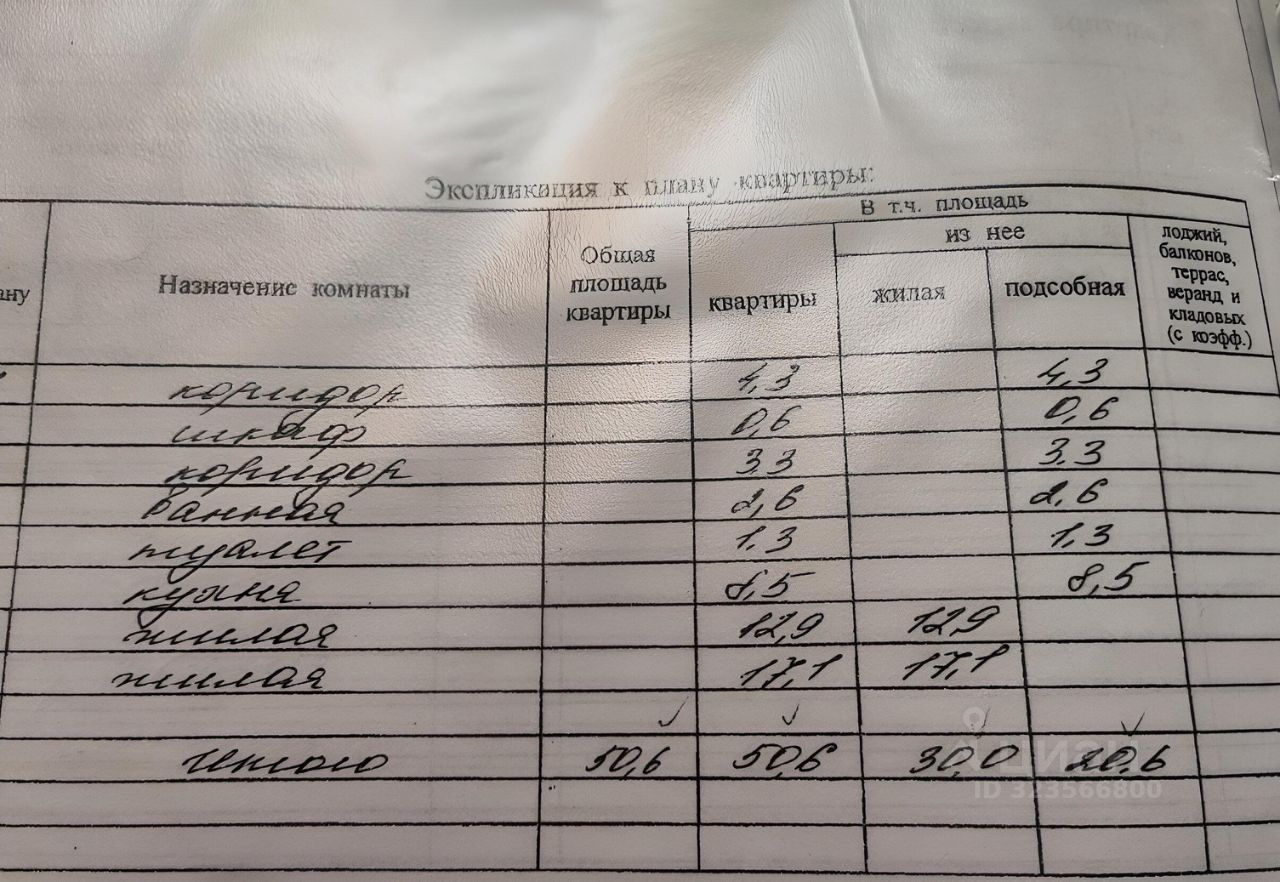 Экспликация к плану квартиры:
В т.ч. площадь
из нее
ану
Назначение комнаты
Общая площадь квартиры
квартиры
жилая
подсобная
лоджий, балконов, террас, веранд и кладовых (с коэфф.)
коридор 4,3 4,3
шкаф 0,6 0,6
коридор 3.3 3.3
ванная 2,6 2,6
туалет 1.3 1.3
кухня 8,5 8,5
жилая 12,9 12,9
жилая 17,1 17,1
Итого 50,6 50,6 30,0 20,6
циан
ID 323566800